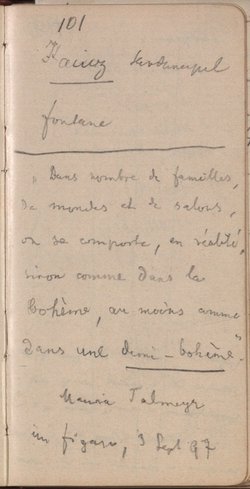 101
fontane
„Dans nombre de familles,
de mondes et de salons,
on se comporte, en réalité,
sinon comme dans la
Bohème, au moins comme
dans une demi-bohème“
Mauria Talmeyr
im figaro, 3 Sept 97